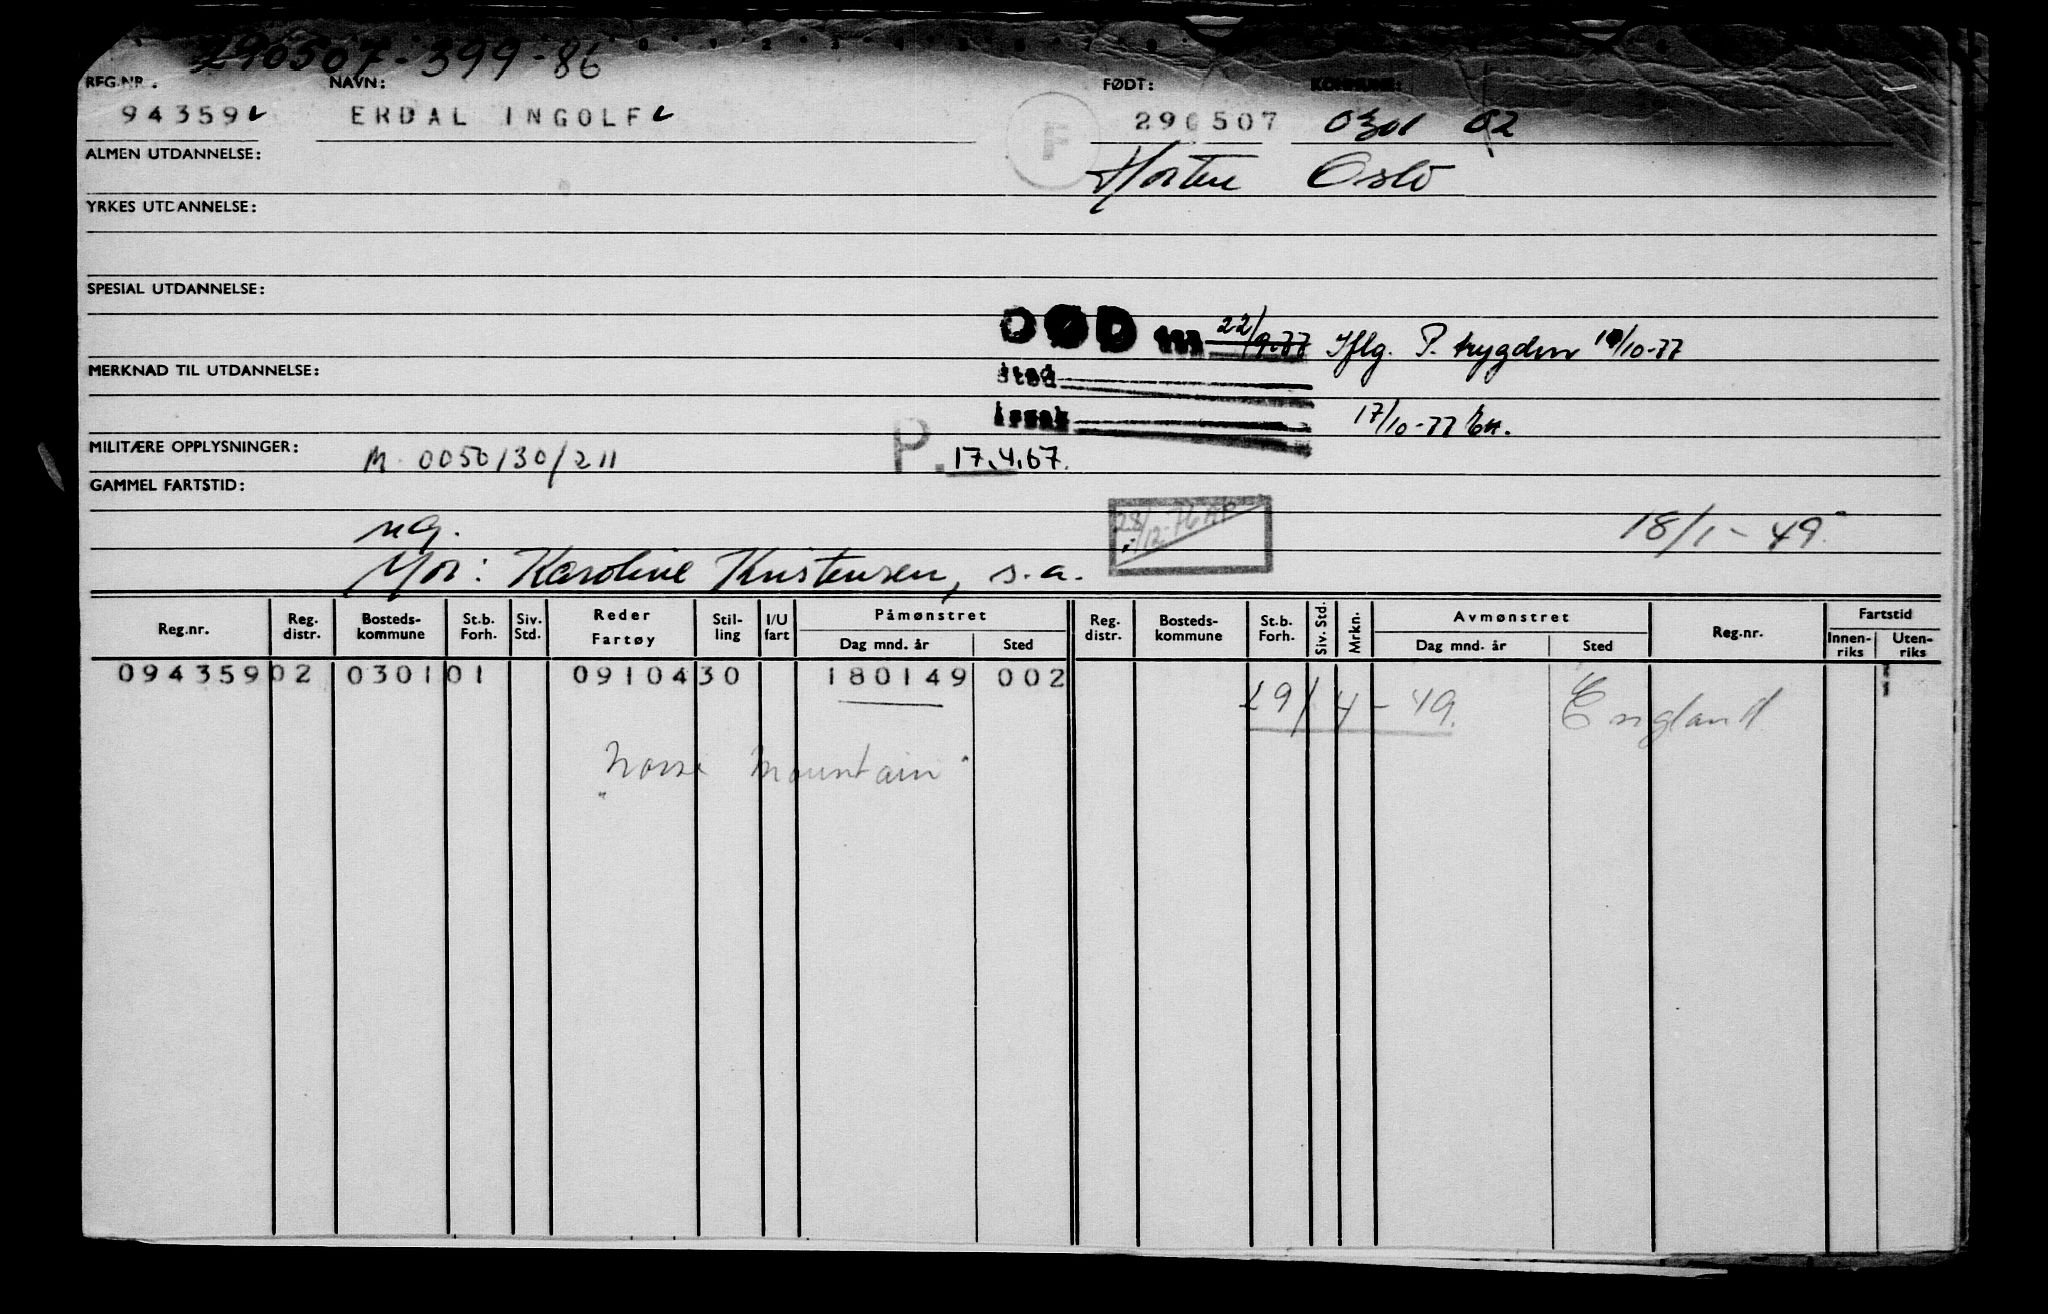 290507-399-86
REG.NR. NAVN: FØDT: KOMMUNE:
94359 ERDAL INGOLF F 290507 0301 02
ALMEN UTDANNELSE: Horten Oslo
YRKES UTDANNELSE:
SPESIAL UTDANNELSE:
DØD den 22/9-77 Iflg. P. trygden 10/10-77
MERKNAD TIL UTDANNELSE: sted
årsak 17/10-77
MILITÆRE OPPLYSNINGER: M. 0050/30/211 P. 17.4.67.
GAMMEL FARTSTID:
ug. 28/12-76 18/1-49
Mor: Karoline Kristensen, s.a.
Reg.nr. Reg. distr. Bosteds-kommune St.b. Forh. Siv. Std. Reder Fartøy Stil-ling I/U fart Påmønstret Dag mnd. år Sted Reg. distr. Bosteds-kommune St.b. Forh. Siv. Std. Mrkn. Avmønstret Dag mnd. år Sted Reg.nr. Fartstid Innen-riks Uten-riks
094359 02 0301 01 09104 30 180149 002 29/4-49. England
"Norse Mountain"